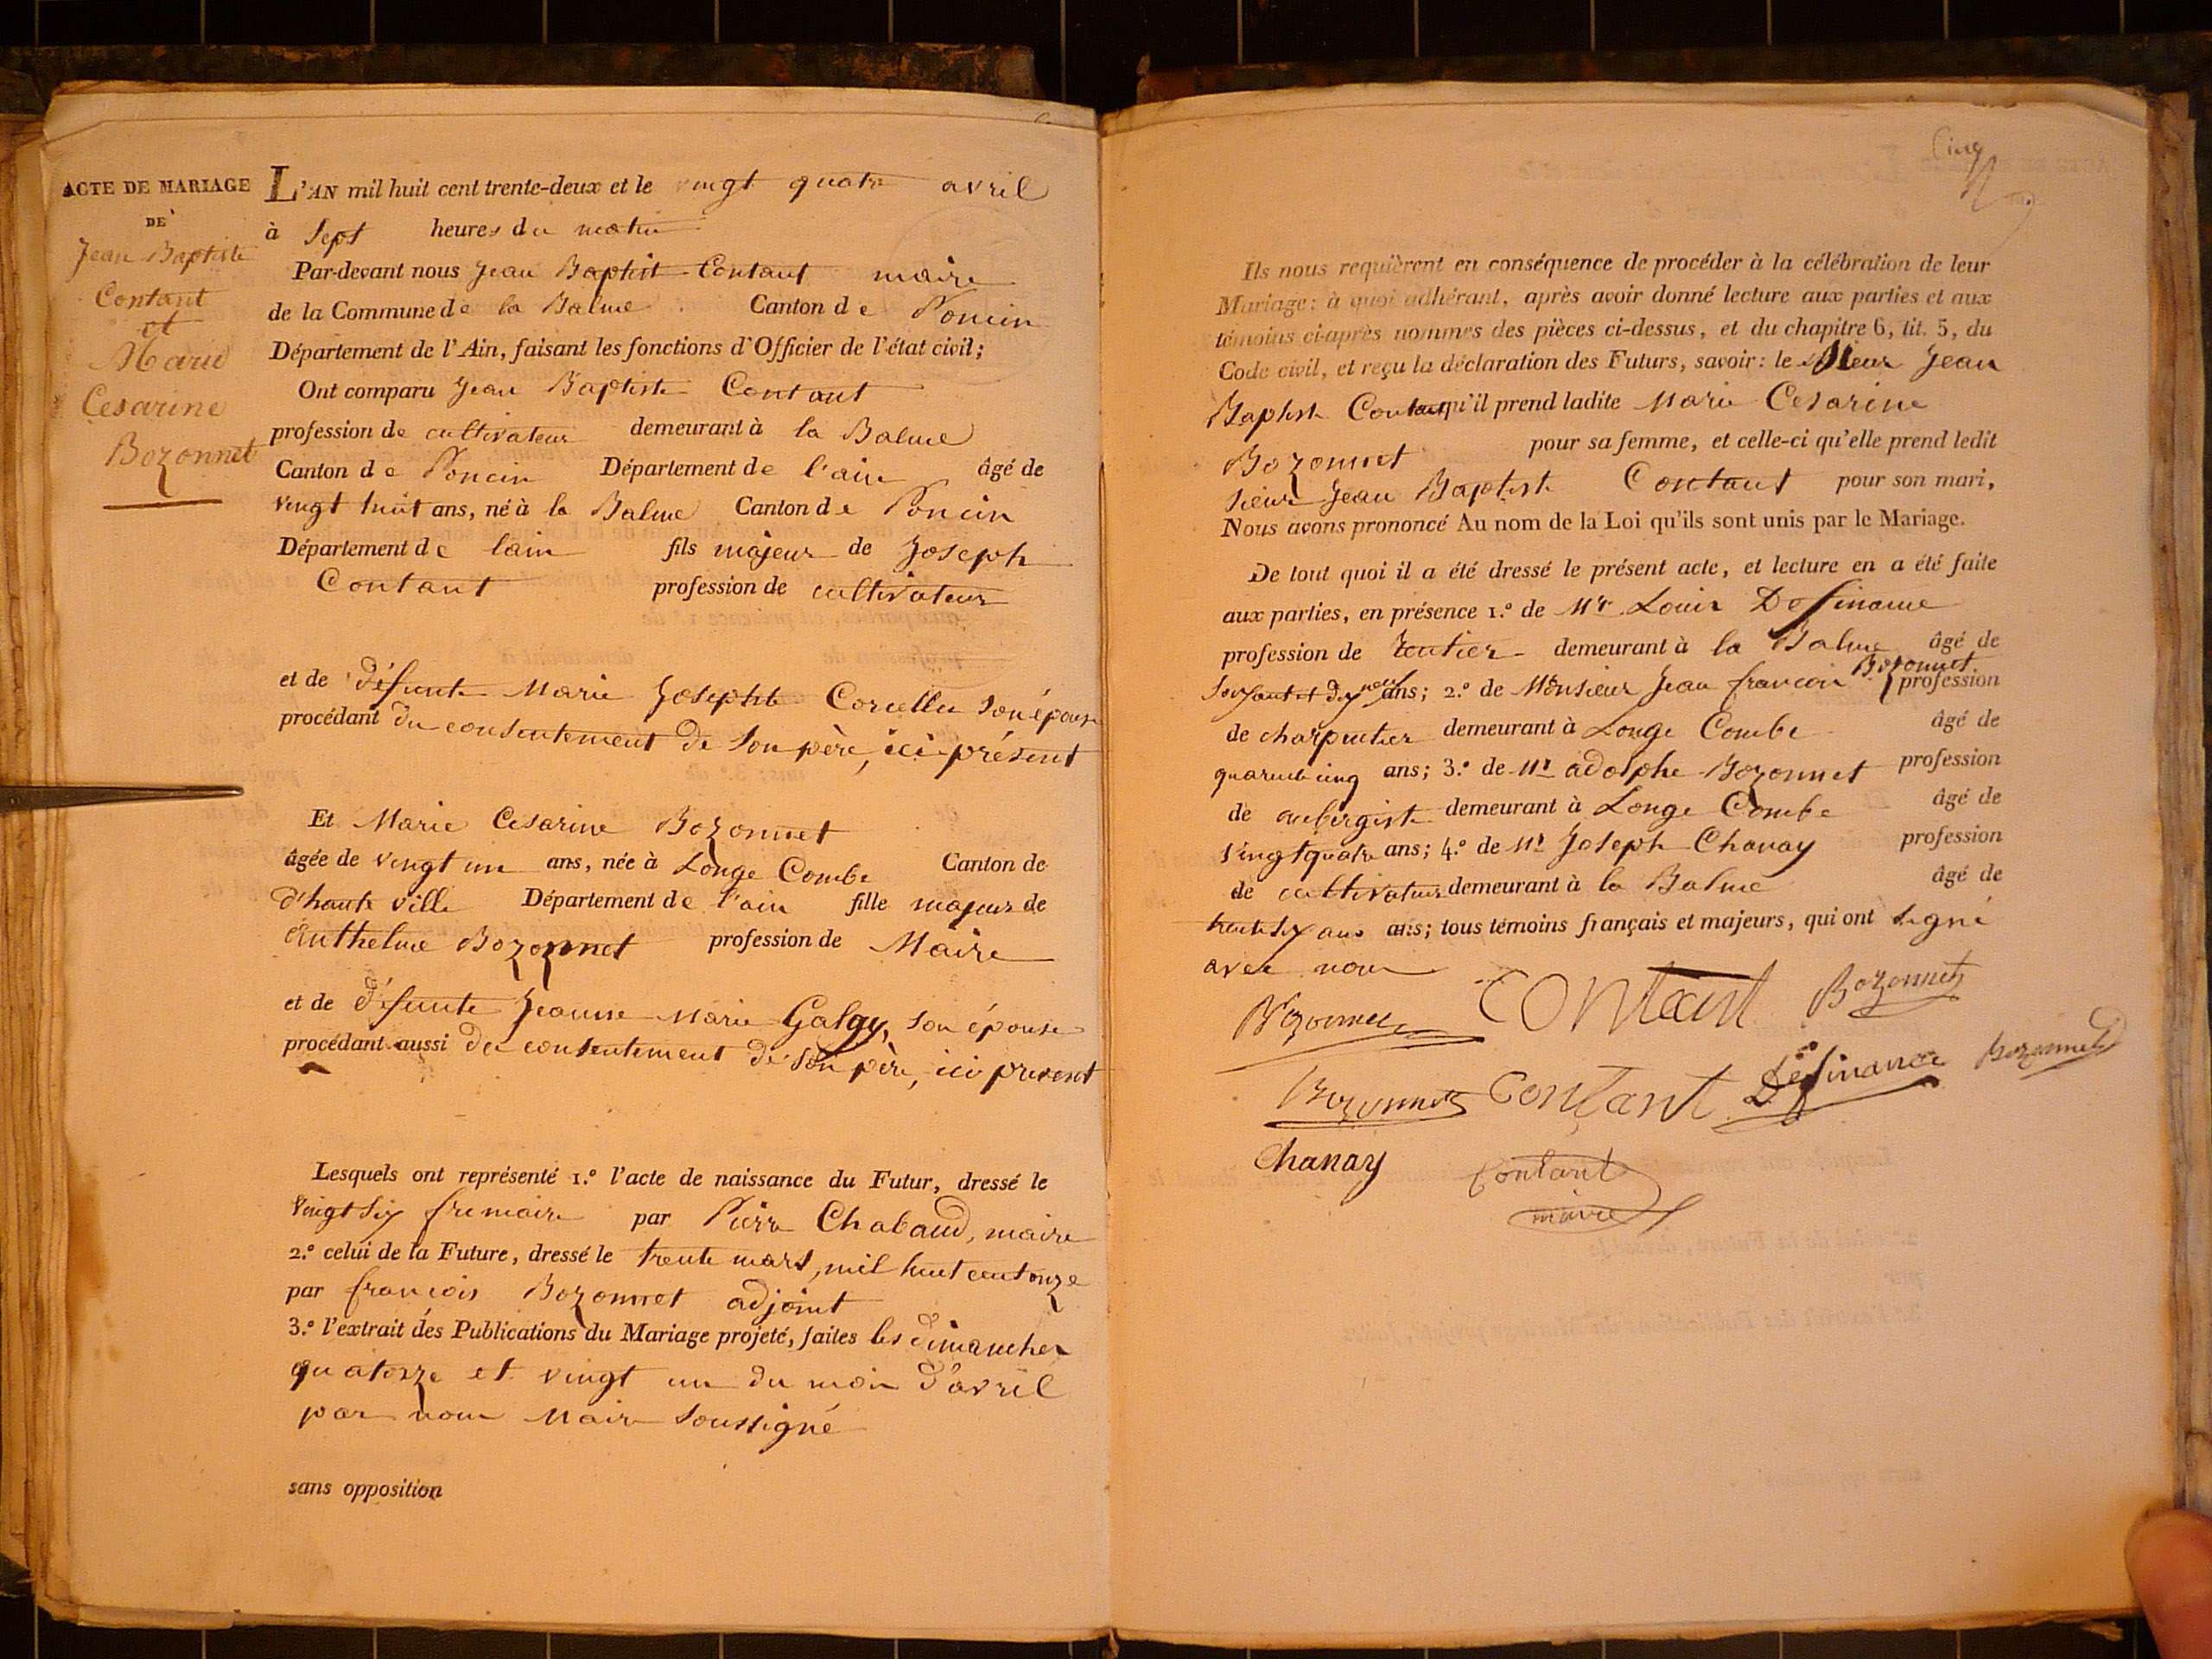 ACTE DE MARIAGE
DE
Jean Baptiste
Contant
et
Marie
Cesarine
Bozonnet
L'AN mil huit cent trente-deux et le vingt quatre avril
à sept heures du matin
Par-devant nous Jean Baptist Contant maire
de la Commune de la Balme Canton de Poncin
Département de l'Ain, faisant les fonctions d'Officier de l'état civil;
Ont comparu Jean Baptiste Contant
profession de cultivateur demeurant à la Balme
Canton de Poncin Département de l'ain âgé de
vingt huit ans, né à la Balme Canton de Poncin
Département de lain fils majeur de Joseph
Contant profession de cultivateur
et de défunte Marie Josephte son épouse
procédant du consentement de son père, ici présent
Et Marie Cesarine Bozonnet
âgée de vingt un ans, née à Longe Combe Canton de
d'haute ville Département de l'ain fille majeur de
Anthelme Bozonnet profession de Maire
et de défunte Jeanne Marie Galay, son épouse
procédant aussi du consentement de son père, ici present
Lesquels ont représenté 1.º l'acte de naissance du Futur, dressé le
vingt six frimaire par Pierre Chabaud, maire
2.º celui de la Future, dressé le trente mars, mil huit cent onze
par françois Bozonnet adjoint
3.º l'extrait des Publications du Mariage projeté, faites les dimanches
quatorze et vingt un du mois d'avril
par nous Maire soussigné
sans opposition
Cinq
Ils nous requièrent en conséquence de procéder à la célébration de leur
Mariage: à quoi adhérant, après avoir donné lecture aux parties et aux
témoins ci-après nommés des pièces ci-dessus, et du chapitre 6, tit. 5, du
Code civil, et reçu la déclaration des Futurs, savoir: le sieur Jean
Baptist Contant qu'il prend ladite Marie Cesarine
Bozonnet pour sa femme, et celle-ci qu'elle prend ledit
sieur Jean Baptiste Contant pour son mari,
Nous avons prononcé Au nom de la Loi qu'ils sont unis par le Mariage.
De tout quoi il a été dressé le présent acte, et lecture en a été faite
aux parties, en présence 1.º de Mr Louis Definance
profession de rentier demeurant à la Balme âgé de
soixante et dix neuf ans; 2.º de Monsieur Jean francois Bozonnet profession
de charpentier demeurant à Longe Combe âgé de
quarente cinq ans; 3.º de Mr adolphe Bozonnet profession
de aubergiste demeurant à Longe Combe âgé de
vingt quatre ans; 4.º de Mr Joseph Chanay profession
de cultivateur demeurant à la Balme âgé de
trente six ans ans; tous témoins français et majeurs, qui ont signé
avec nous
Bozonnet Contant Bozonnet
Bozonnet Contant Definance Bozonnet
Chanay Contant
maire